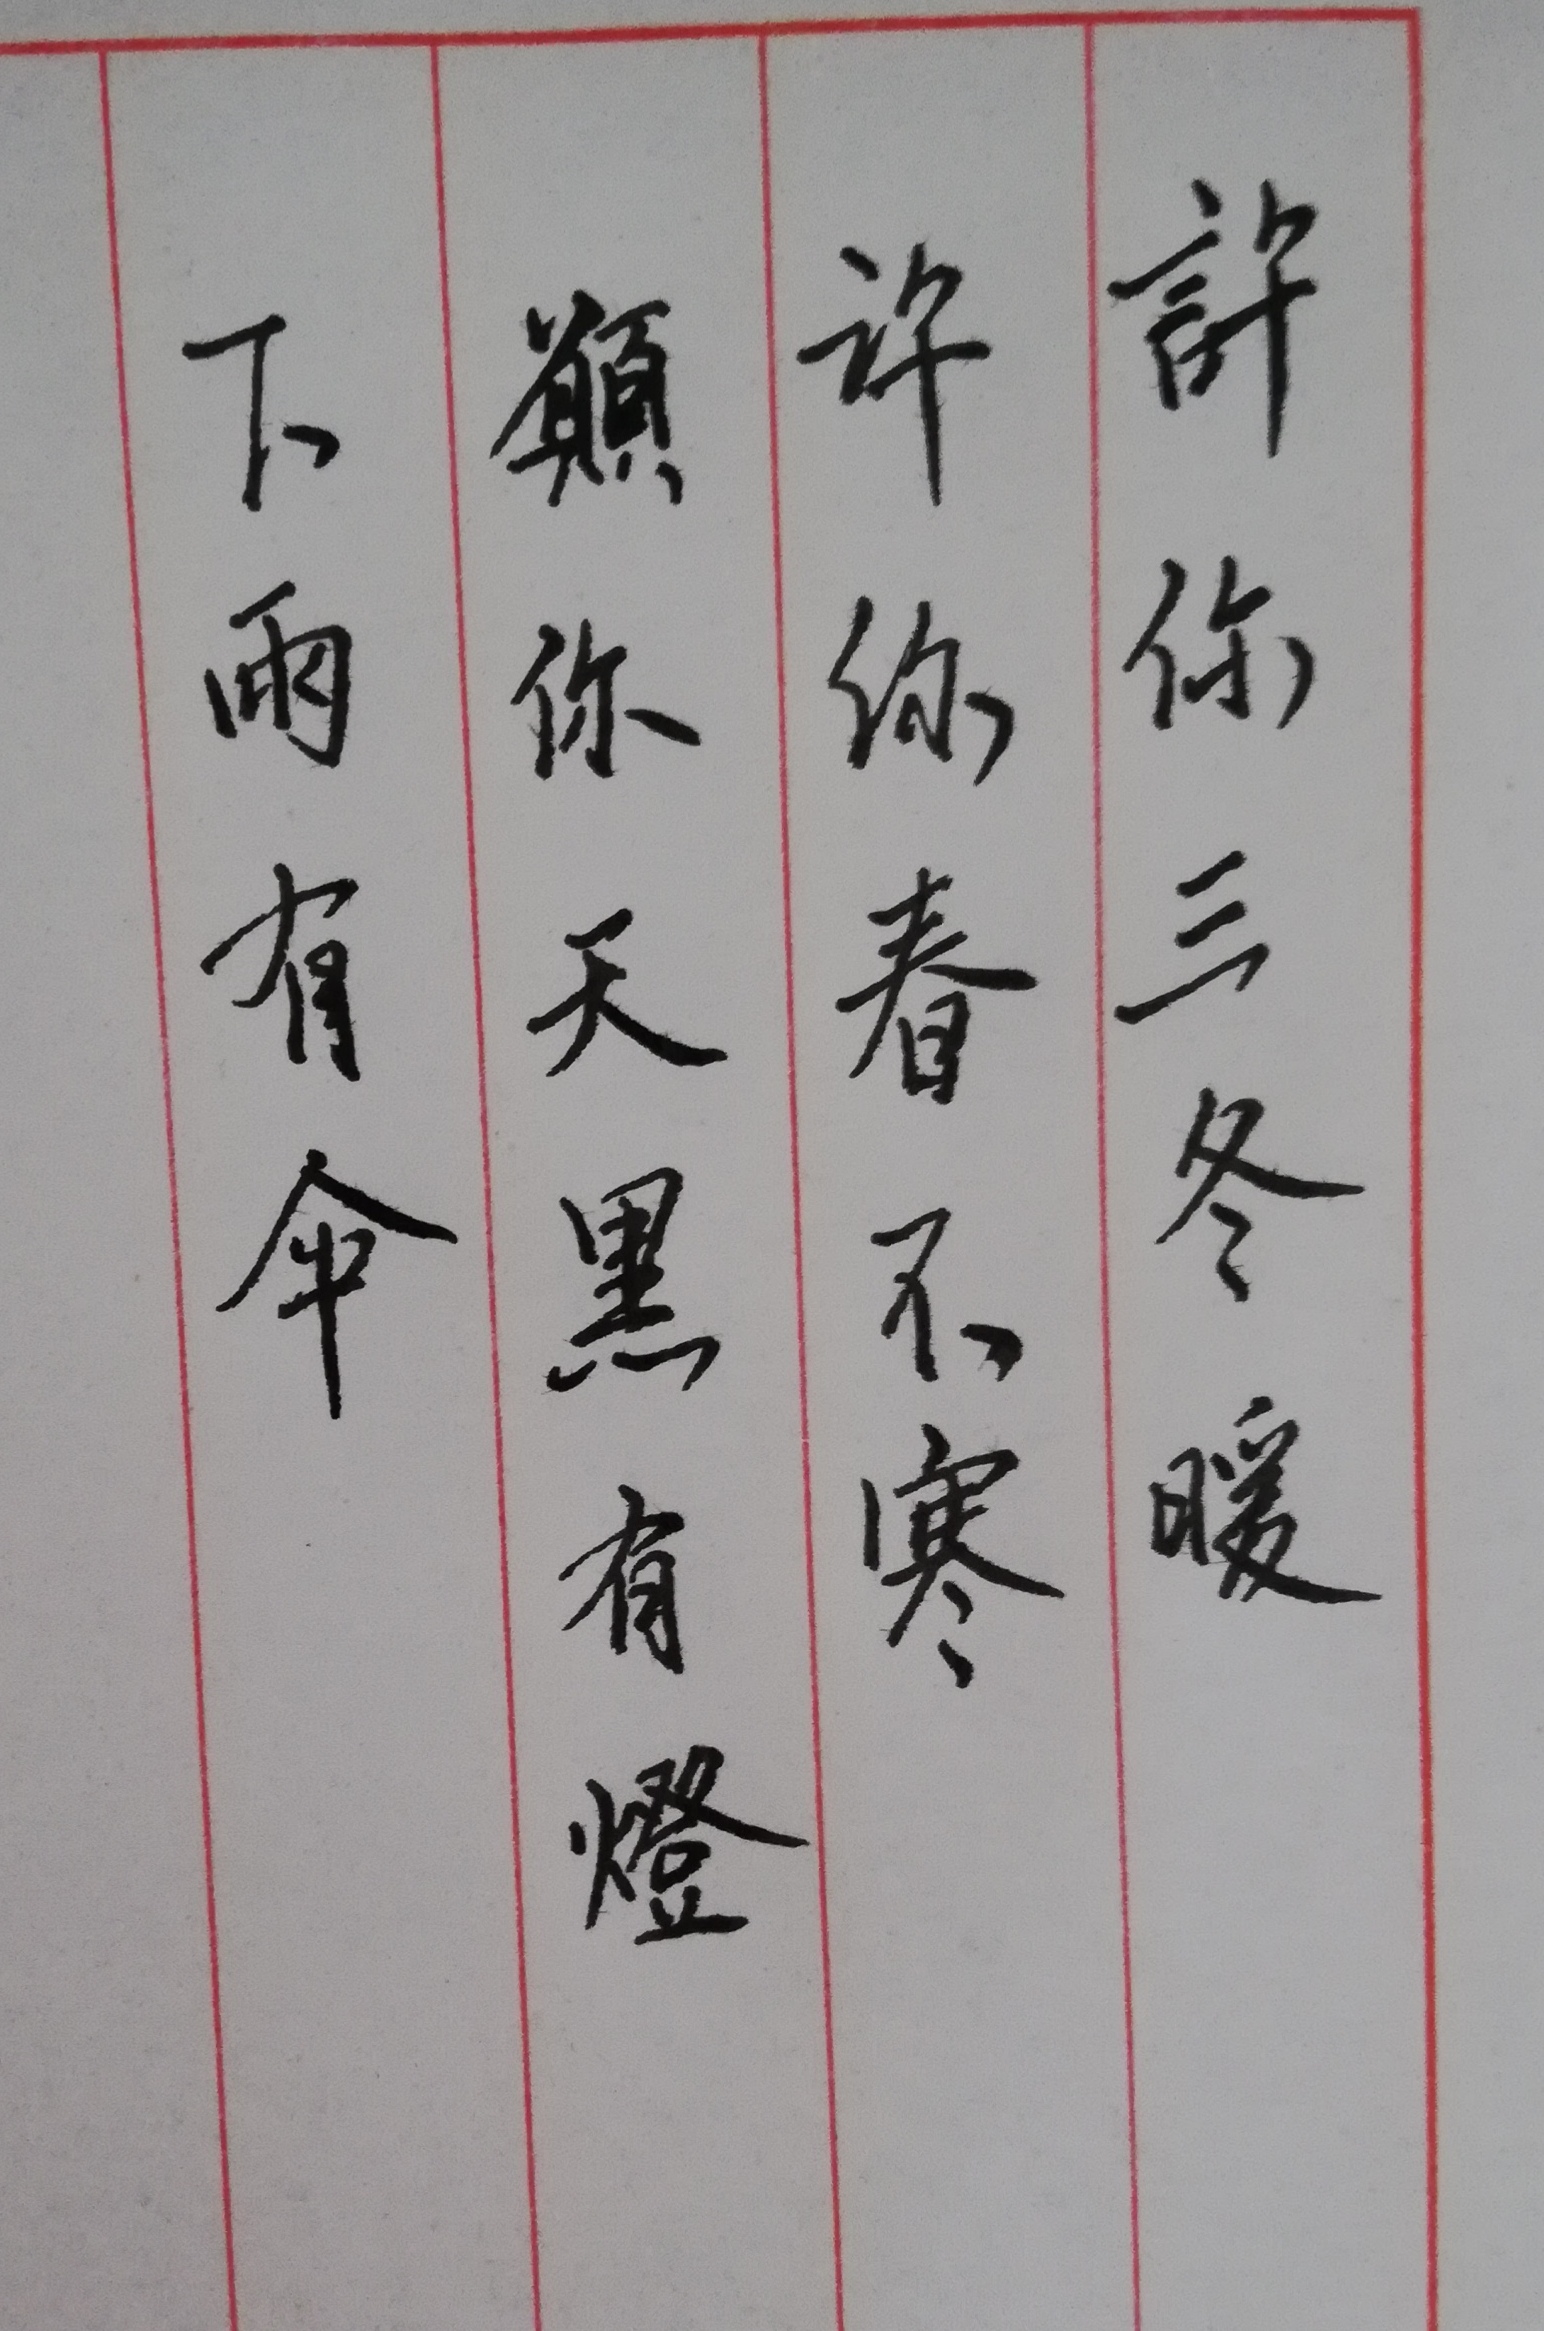 許你三冬暖
许你春不寒
願你天黑有燈
下雨有伞